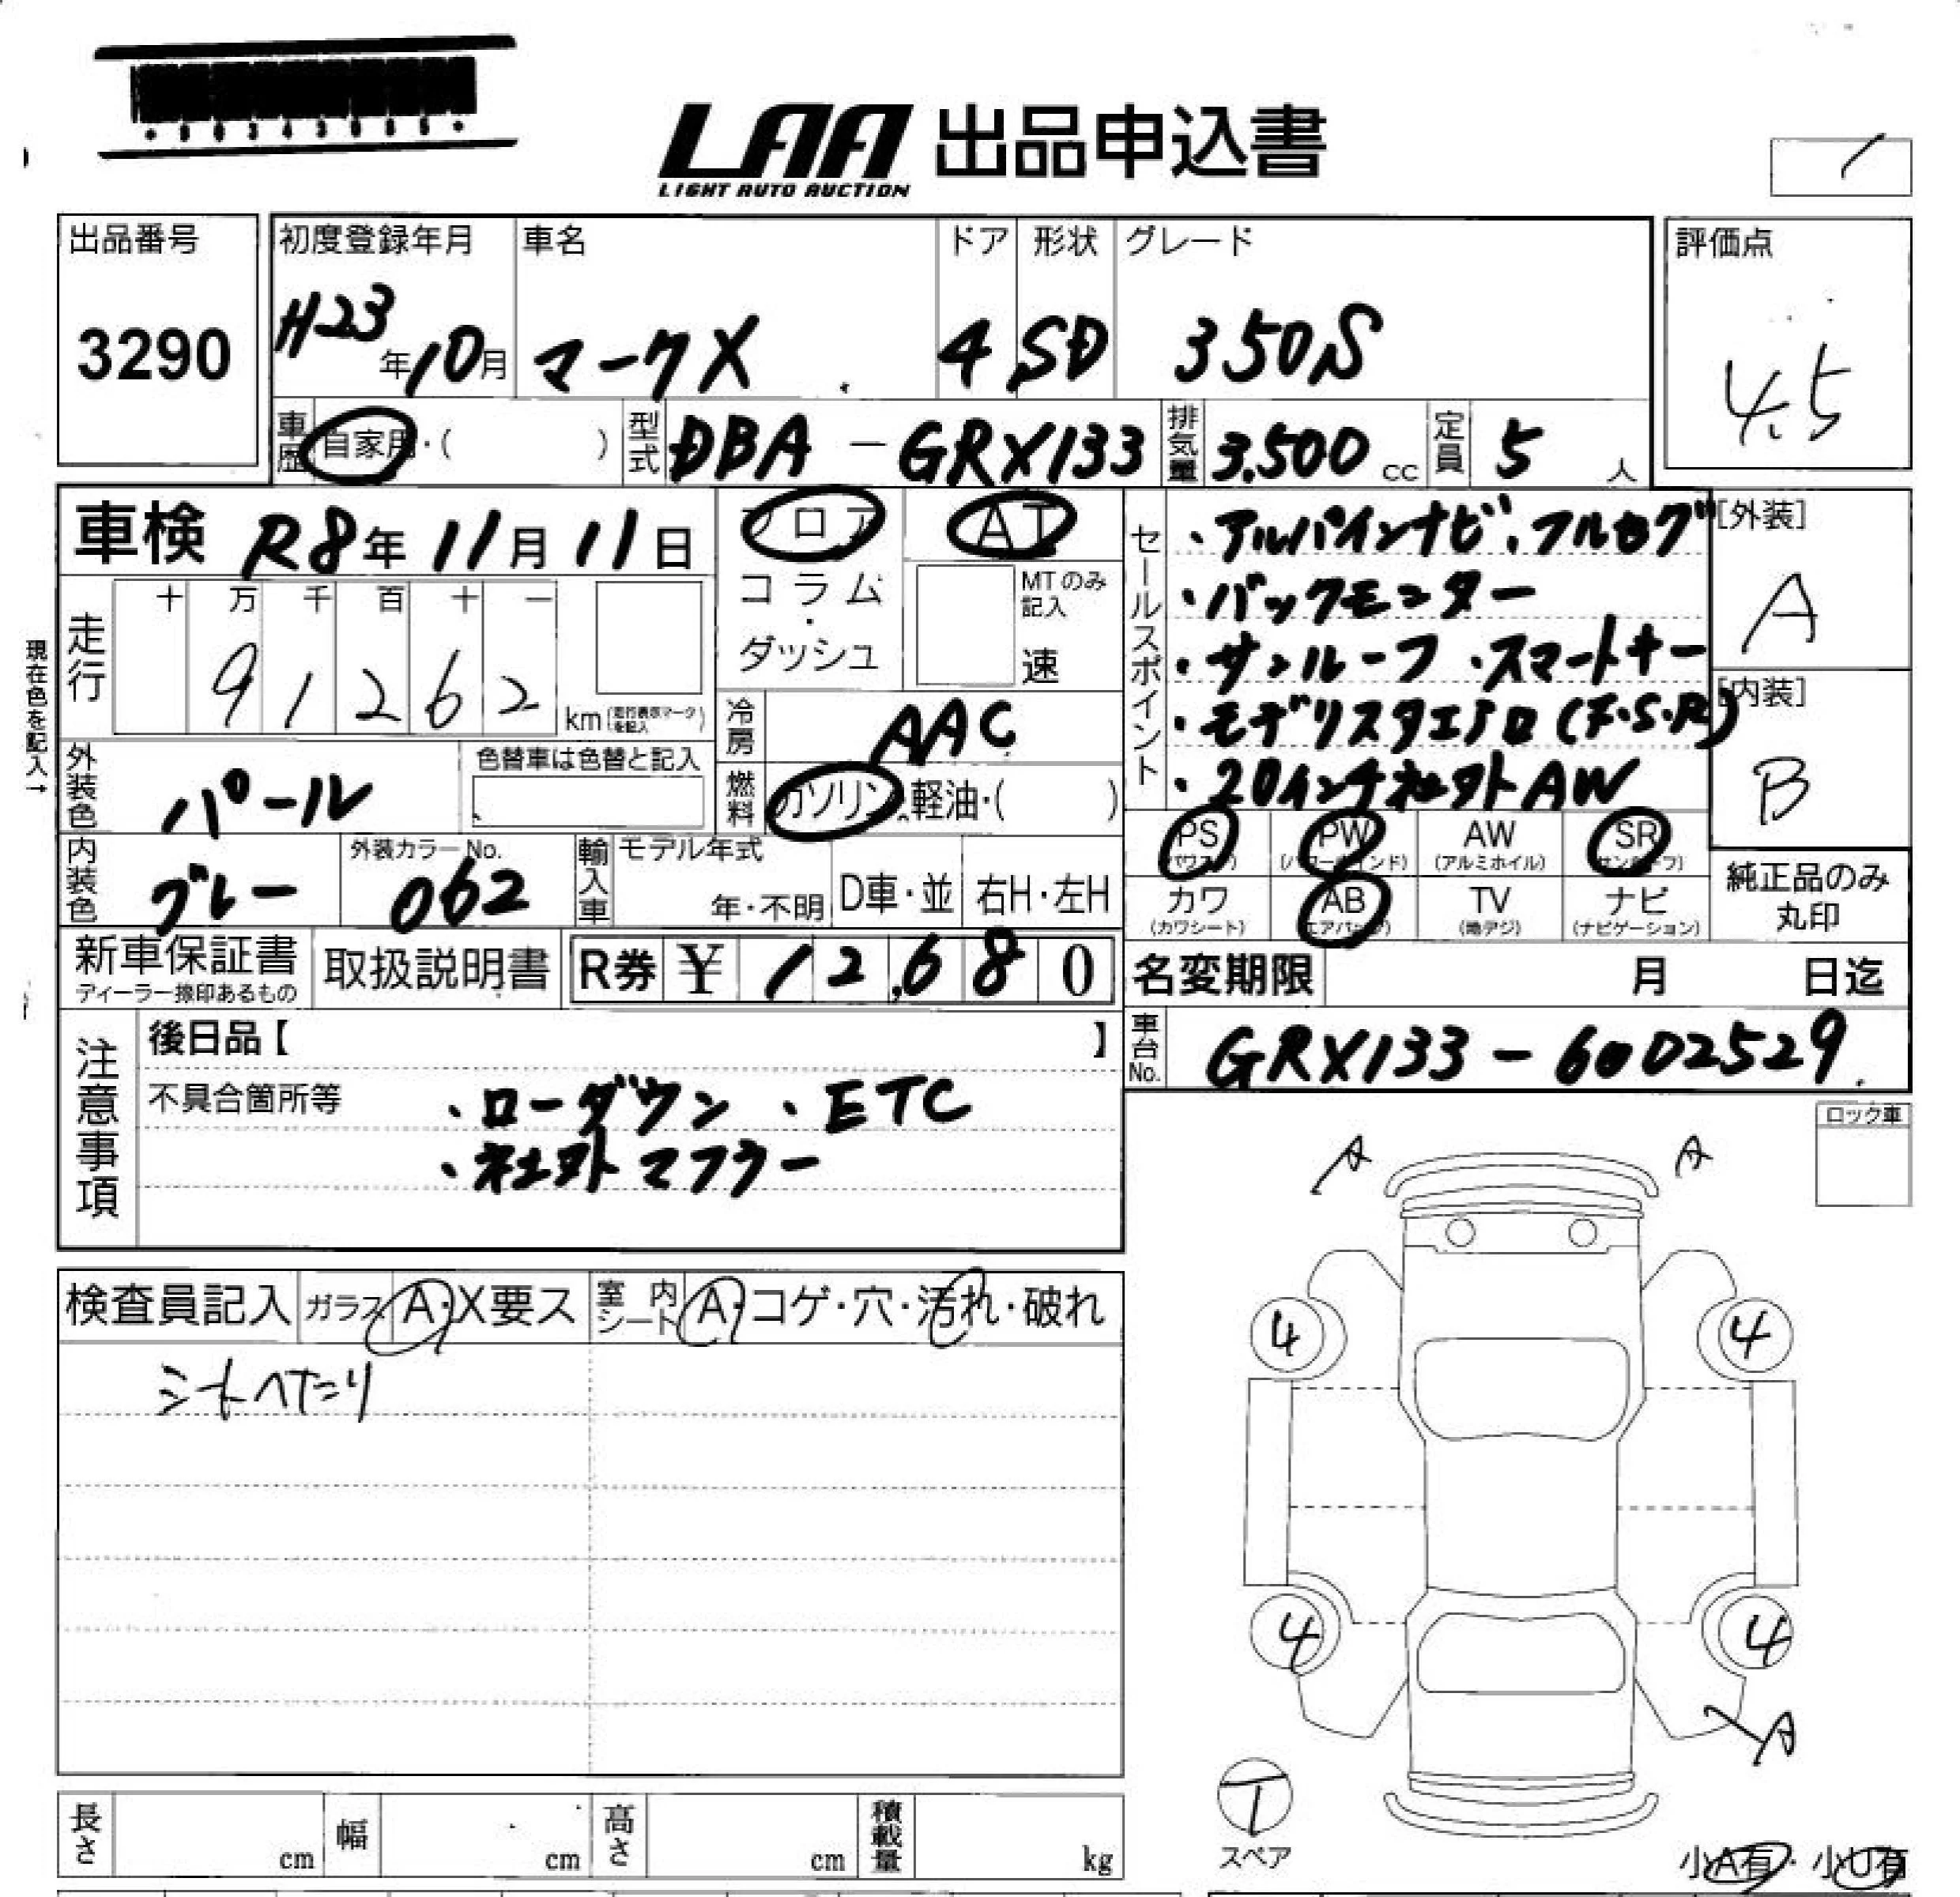 LAA 出品申込書
LIGHT AUTO AUCTION
出品番号
3290
初度登録年月 車名 ドア 形状 グレード
H23年10月 マークX 4 SD 350S
評価点
4.5
車歴 自家用・( ) 型式 DBA-GRX133 排気量 3,500cc 定員 5人
車検 R8年11月11日
フロア
コラム
・
ダッシュ
AT
MTのみ
記入
速
セールスポイント
・アルパインナビ、フルセグ
・バックモニター
・サンルーフ ・スマートキー
・モデリスタエアロ(F・S・R)
・20インチ社外AW
[外装]
A
[内装]
B
現在色を記入→
走行
十 万 千 百 十 一
9 1 2 6 2
km(走行表示マークを記入)
冷房 AAC
燃料 ガソリン・軽油・( )
外装色 パール
色替車は色替と記入
内装色 グレー
外装カラーNo.
062
輸入車
モデル年式
年・不明
D車・並
右H・左H
PS (パワステ)
PW (パワーウインド)
AW (アルミホイル)
SR (サンルーフ)
カワ (カワシート)
AB (エアバッグ)
TV (地デジ)
ナビ (ナビゲーション)
純正品のみ
丸印
新車保証書
ディーラー捺印あるもの
取扱説明書
R券 ¥ 12,680
名変期限 月 日迄
車台No. GRX133-6002529
注意事項
後日品【 】
不具合箇所等
・ローダウン ・ETC
・社外マフラー
ロック車
検査員記入 ガラス A・X要ス 室内シート A・コゲ・穴・汚れ・破れ
シートへたり
A A
4 4
4 4
A
T
スペア
小A有・小U有
長さ cm 幅 cm 高さ cm 積載量 kg